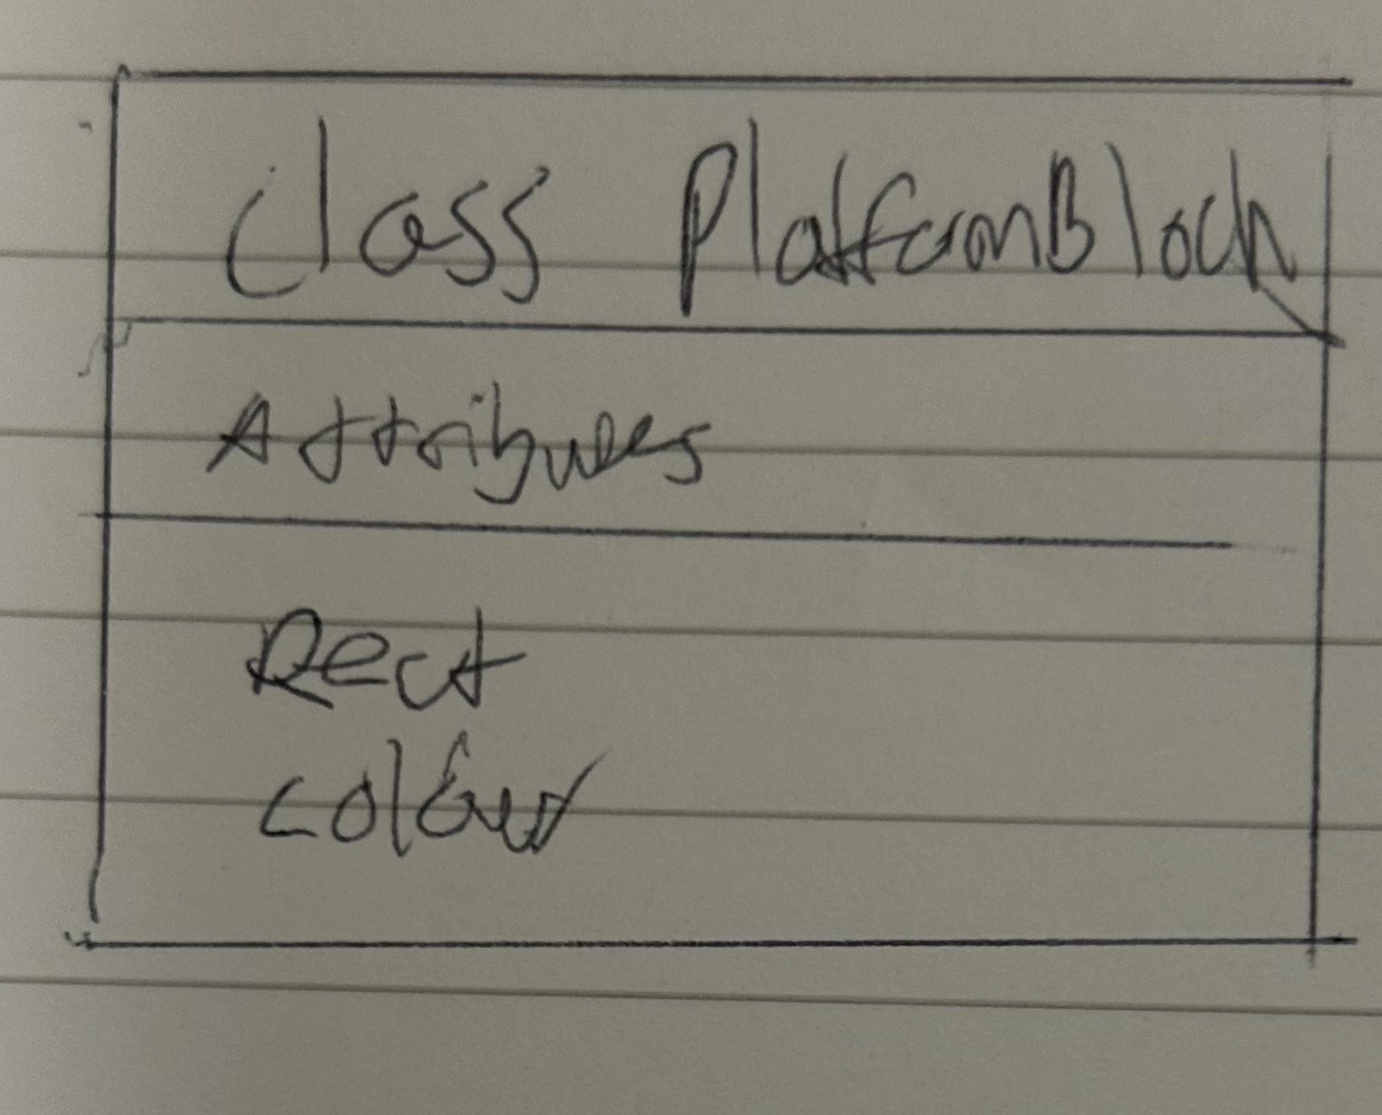 Class PlatformBlock
Attributes
Rect
Colour